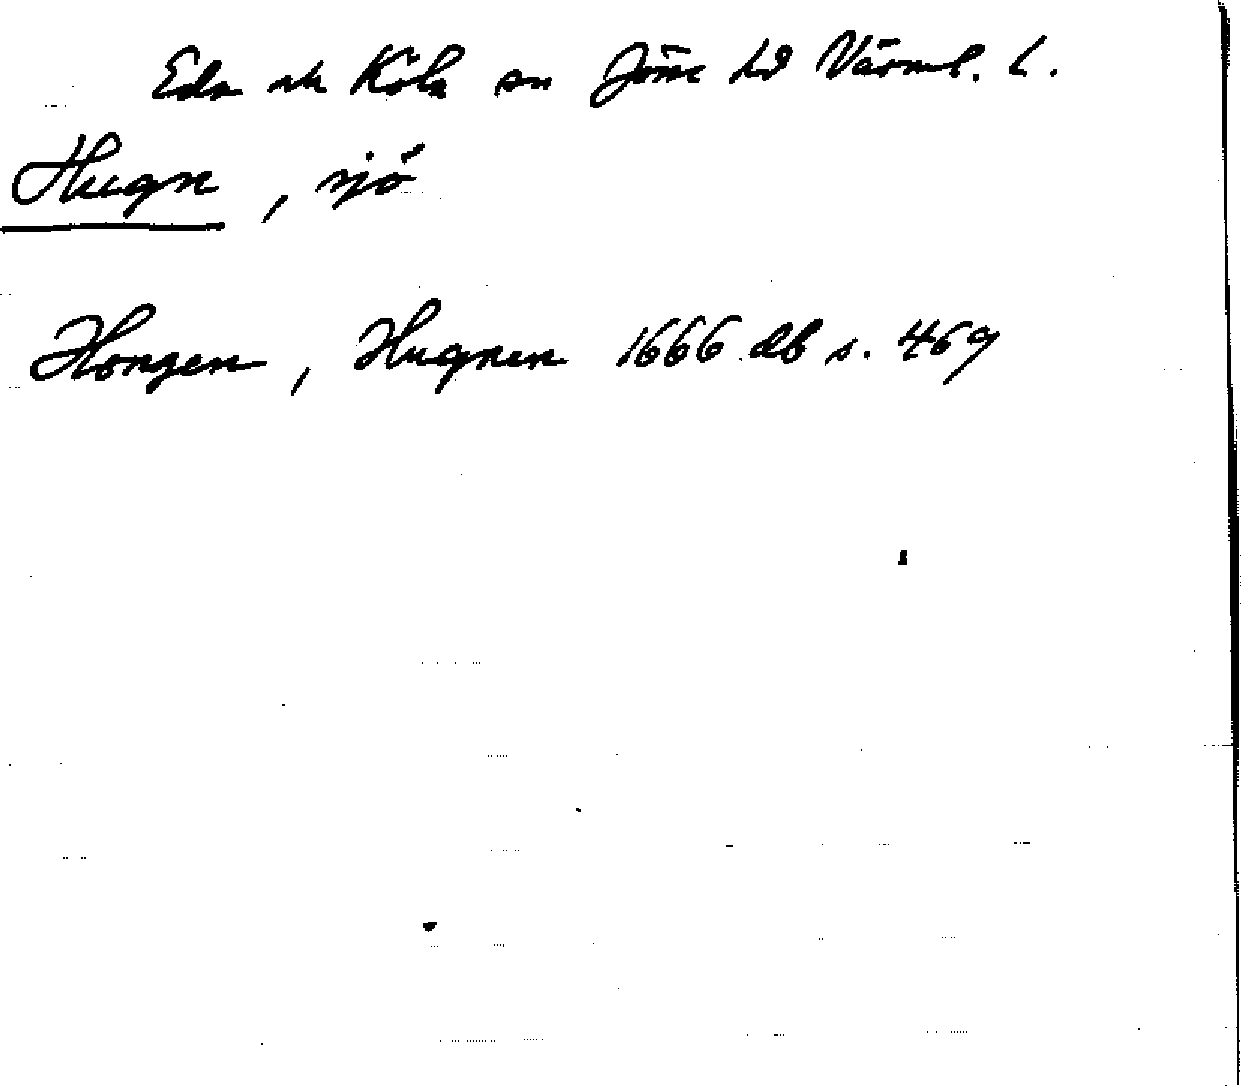 Eda ok Köla sn Jösse hd Värml. l.
Hugn, sjö
Hongen, Hugnen 1666 db s. 469